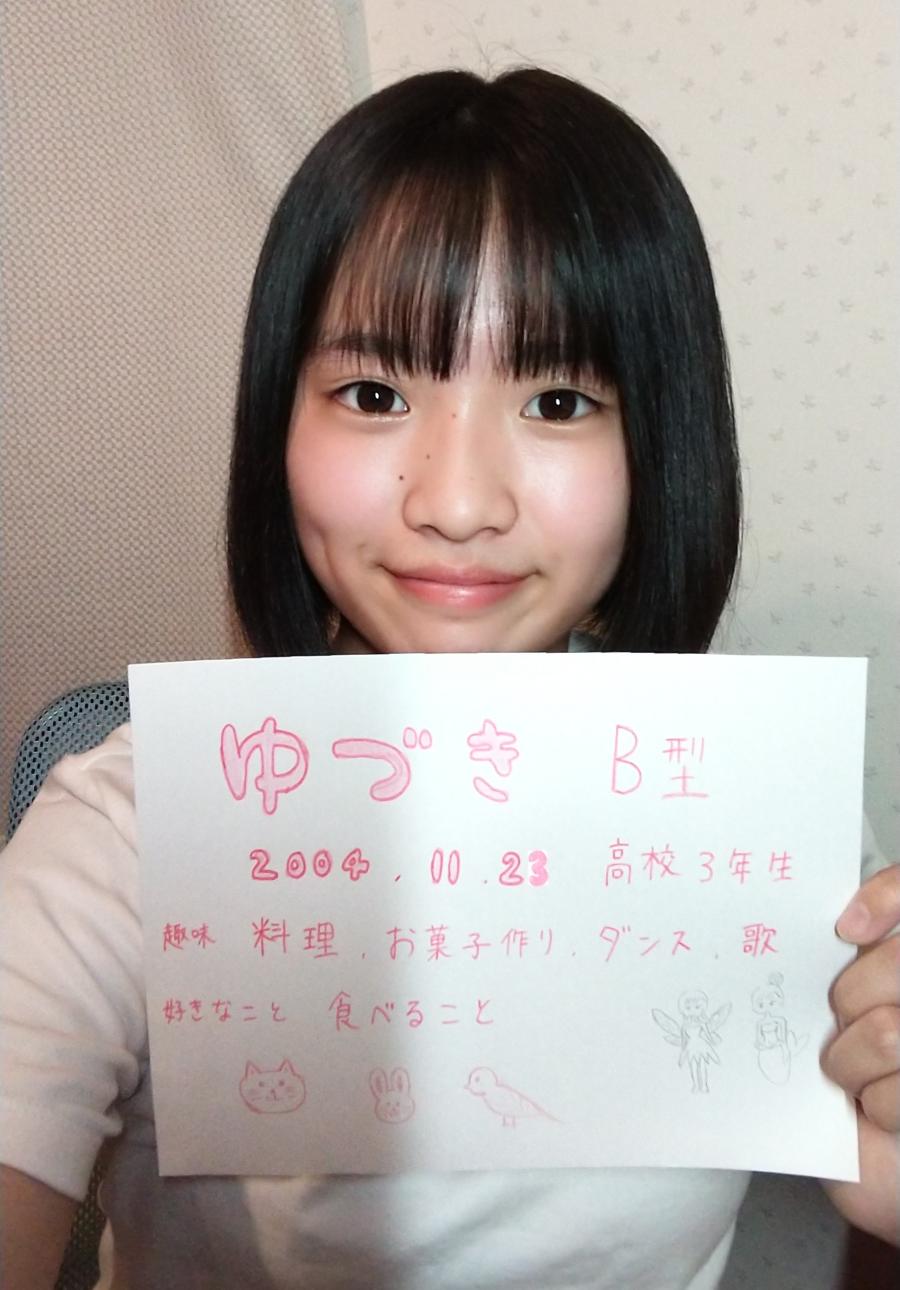 ゆづき B型
2004.11.23 高校3年生
趣味 料理、お菓子作り、ダンス、歌
好きなこと 食べること